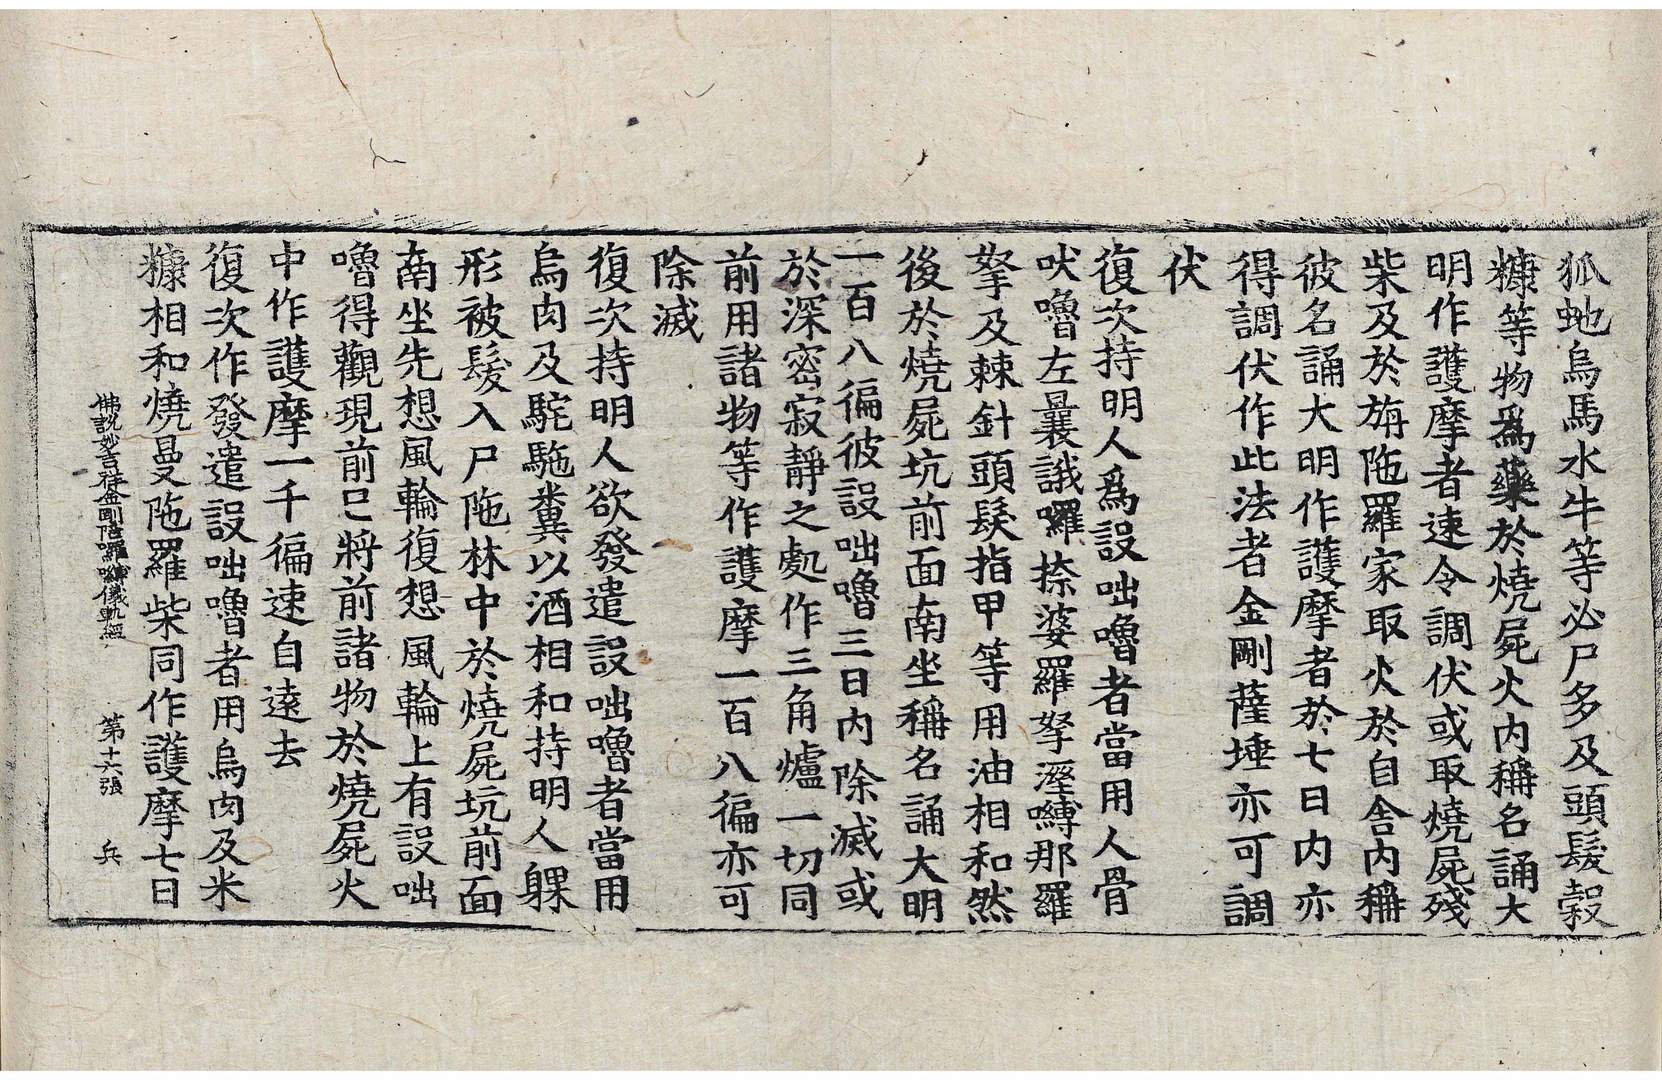 狐虵烏馬水牛等必尸多及頭髮穀
糠等物爲藥於燒屍火內稱名誦大
明作護摩者速令調伏或取燒屍殘
柴及於旃陁羅家取火於自舍內稱
彼名誦大明作護摩者於七日內亦
得調伏作此法者金剛薩埵亦可調
伏
復次持明人爲設咄嚕者當用人骨
吠嚕左曩誐囉捺婆羅拏溼嚩那羅
拏及棘針頭髮指甲等用油相和然
後於燒屍坑前面南坐稱名誦大明
一百八徧彼設咄嚕三日內除滅或
於深密寂靜之處作三角爐一切同
前用諸物等作護摩一百八徧亦可
除滅
復次持明人欲發遣設咄嚕者當用
烏肉及駝䭾糞以酒相和持明人躶
形被髮入尸陁林中於燒屍坑前面
南坐先想風輪復想風輪上有設咄
嚕得觀現前已將前諸物於燒屍火
中作護摩一千徧速自遠去
復次作發遣設咄嚕者用烏肉及米
糠相和燒曼陁羅柴同作護摩七日
佛說妙吉祥金剛陪囉嚩儀軌經 第十六張 兵